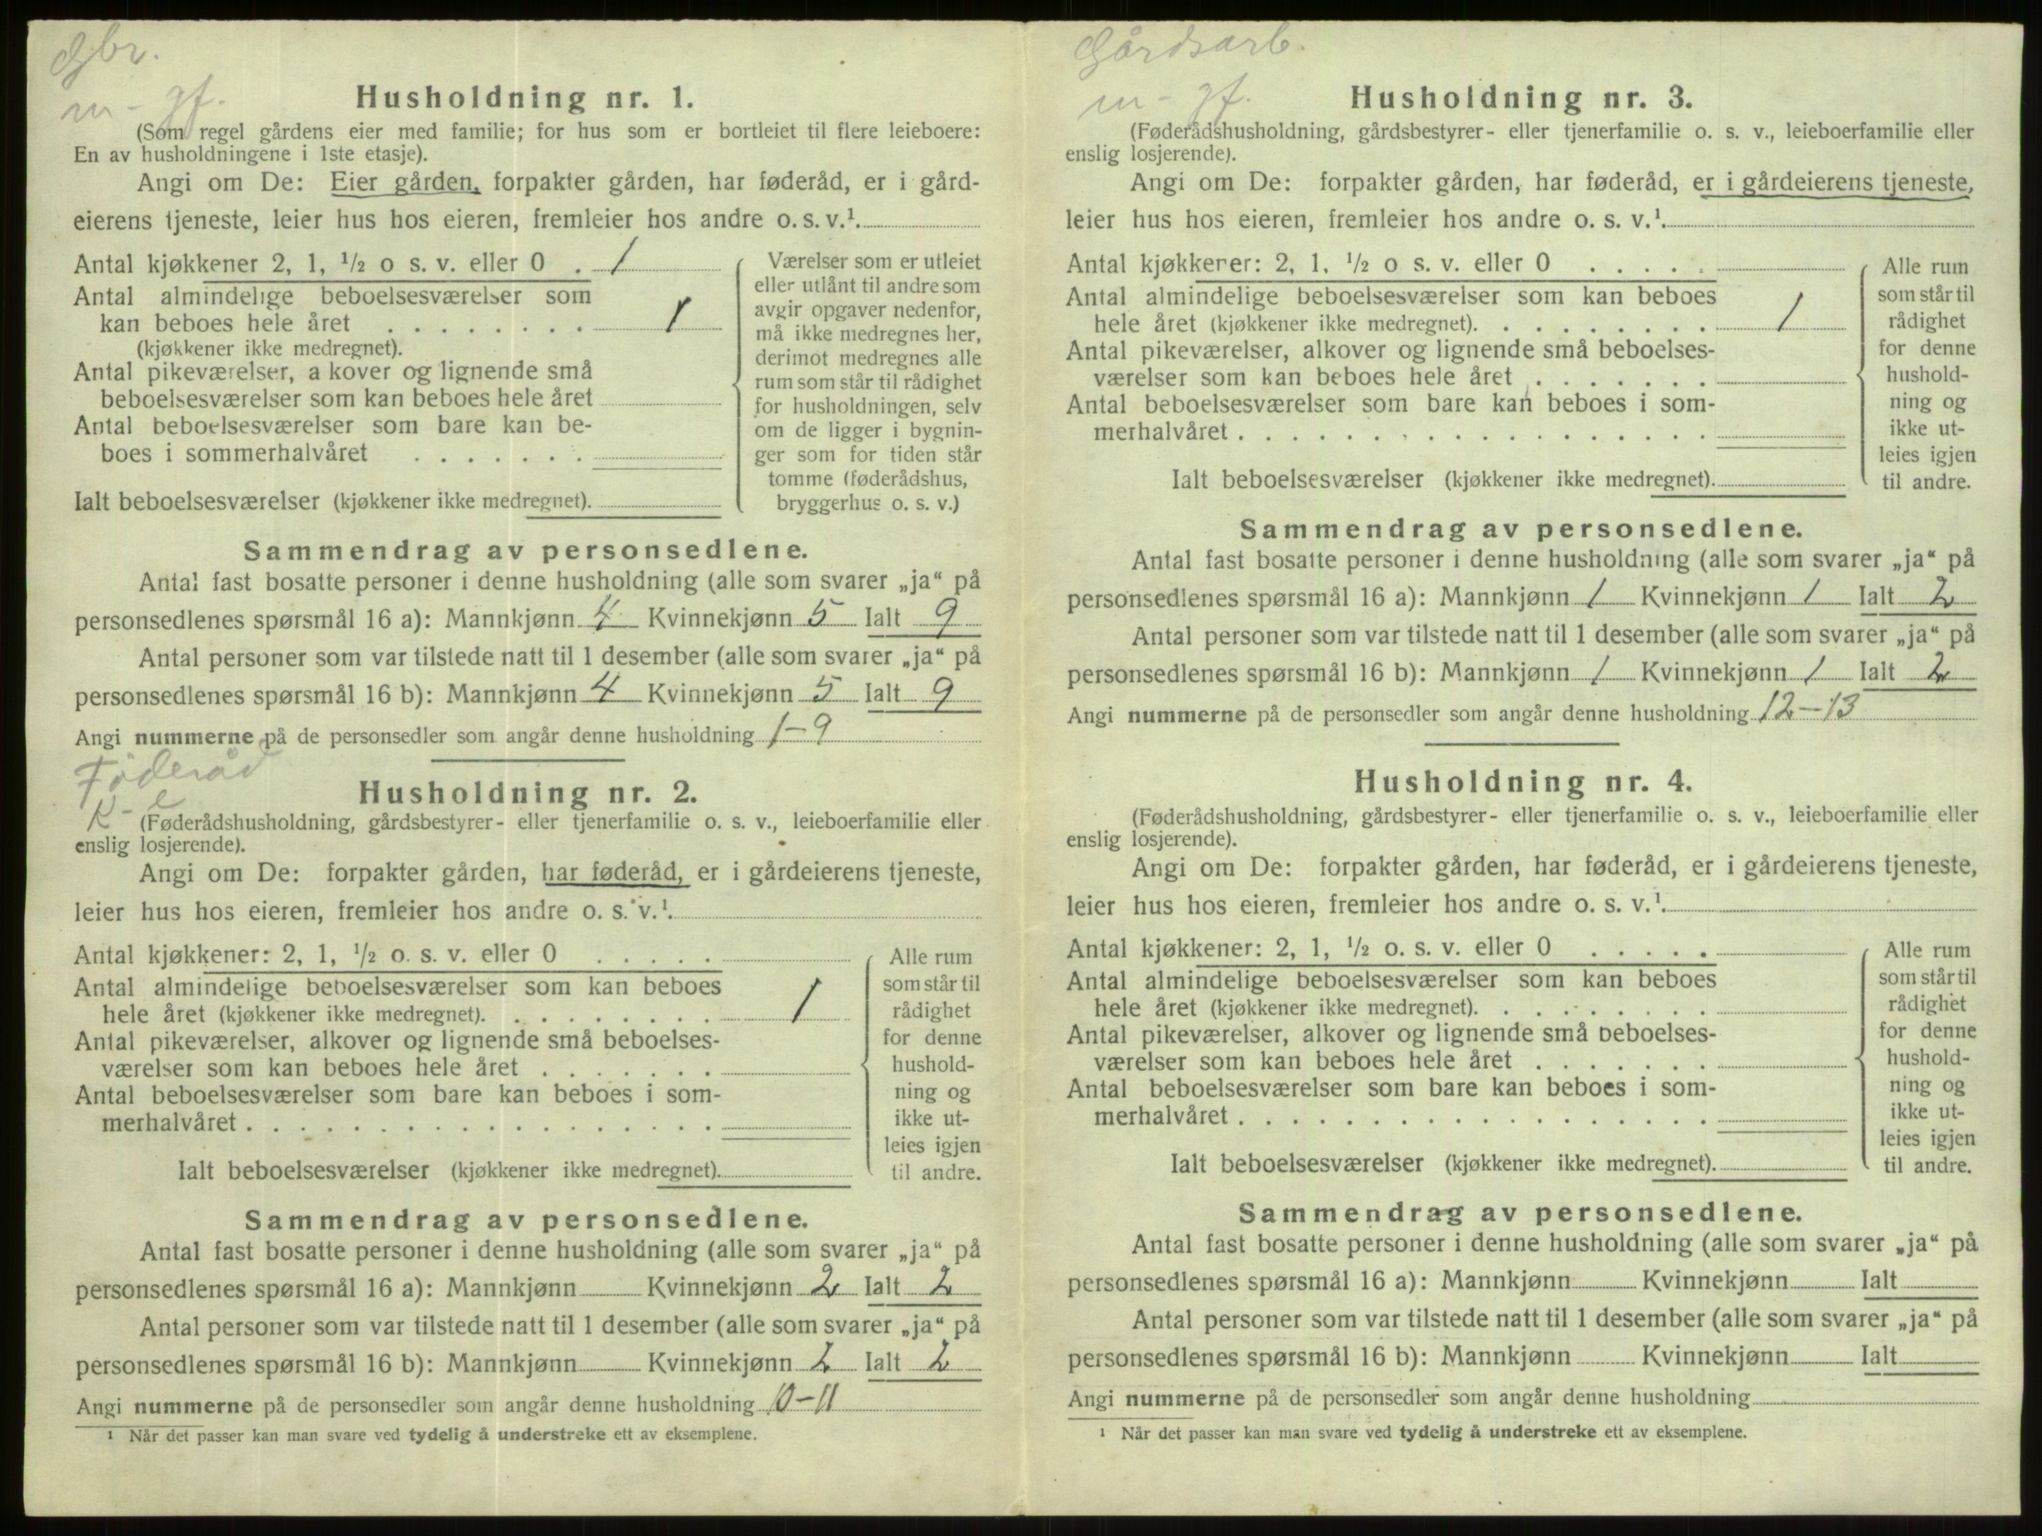 Gbr.
m - gf.
Husholdning nr. 1.
(Som regel gårdens eier med familie; for hus som er bortleiet til flere leieboere:
En av husholdningene i 1ste etasje).
Angi om De: Eier gården, forpakter gården, har føderåd, er i gård-
eierens tjeneste, leier hus hos eieren, fremleier hos andre o. s. v.¹
Antal kjøkkener 2, 1, ½ o s. v. eller 0 . 1
Antal almindelige beboelsesværelser som
kan beboes hele året . . . . . . . . 1
(kjøkkener ikke medregnet).
Antal pikeværelser, a kover og lignende små
beboelsesværelser som kan beboes hele året
Antal beboelsesværelser som bare kan be-
boes i sommerhalvåret . . . . . . .
Ialt beboelsesværelser (kjøkkener ikke medregnet).
Værelser som er utleiet
eller utlånt til andre som
avgir opgaver nedenfor,
må ikke medregnes her,
derimot medregnes alle
rum som står til rådighet
for husholdningen, selv
om de ligger i bygnin-
ger som for tiden står
tomme (føderådshus,
bryggerhus o. s. v.)
Sammendrag av personsedlene.
Antal fast bosatte personer i denne husholdning (alle som svarer „ja“ på
personsedlenes spørsmål 16 a): Mannkjønn 4 Kvinnekjønn 5 Ialt 9
Antal personer som var tilstede natt til 1 desember (alle som svarer „ja“ på
personsedlenes spørsmål 16 b): Mannkjønn 4 Kvinnekjønn 5 Ialt 9
Angi nummerne på de personsedler som angår denne husholdning 1-9
Føderåd
K - e
Husholdning nr. 2.
(Føderådshusholdning, gårdsbestyrer- eller tjenerfamilie o. s. v., leieboerfamilie eller
enslig losjerende).
Angi om De: forpakter gården, har føderåd, er i gårdeierens tjeneste,
leier hus hos eieren, fremleier hos andre o. s. v.¹.
Antal kjøkkener: 2, 1, ½ o. s. v. eller 0 . . . . .
Antal almindelige beboelsesværelser som kan beboes
hele året (kjøkkener ikke medregnet). . . . . . . . . 1
Antal pikeværelser, alkover og lignende små beboelses-
værelser som kan beboes hele året . . . . . . .
Antal beboelsesværelser som bare kan beboes i som-
merhalvåret . . . . . . . . . . . . . . . . . .
Ialt beboelsesværelser (kjøkkener ikke medregnet).
Alle rum
som står til
rådighet
for denne
hushold-
ning og
ikke ut-
leies igjen
til andre.
Sammendrag av personsedlene.
Antal fast bosatte personer i denne husholdning (alle som svarer „ja“ på
personsedlenes spørsmål 16 a): Mannkjønn Kvinnekjønn 2 Ialt 2
Antal personer som var tilstede natt til 1 desember (alle som svarer „ja“ på
personsedlenes spørsmål 16 b): Mannkjønn Kvinnekjønn 2 Ialt 2
Angi nummerne på de personsedler som angår denne husholdning 10-11
¹ Når det passer kan man svare ved tydelig å understreke ett av eksemplene.
Gårdsarb.
m - gf.
Husholdning nr. 3.
(Føderådshusholdning, gårdsbestyrer- eller tjenerfamilie o. s. v., leieboerfamilie eller
enslig losjerende).
Angi om De: forpakter gården, har føderåd, er i gårdeierens tjeneste,
leier hus hos eieren, fremleier hos andre o. s. v.¹.
Antal kjøkkener: 2, 1, ½ o s. v. eller 0 . . . . .
Antal almindelige beboelsesværelser som kan beboes
hele året (kjøkkener ikke medregnet). . . . . . . . . 1
Antal pikeværelser, alkover og lignende små beboelses-
værelser som kan beboes hele året . . . . . . .
Antal beboelsesværelser som bare kan beboes i som-
merhalvåret . . . . . . . . . . . . . . . . . .
Ialt beboelsesværelser (kjøkkener ikke medregnet).
Alle rum
som står til
rådighet
for denne
hushold-
ning og
ikke ut-
leies igjen
til andre.
Sammendrag av personsedlene.
Antal fast bosatte personer i denne husholdning (alle som svarer „ja“ på
personsedlenes spørsmål 16 a): Mannkjønn 1 Kvinnekjønn 1 Ialt 2
Antal personer som var tilstede natt til 1 desember (alle som svarer „ja“ på
personsedlenes spørsmål 16 b): Mannkjønn 1 Kvinnekjønn 1 Ialt 2
Angi nummerne på de personsedler som angår denne husholdning 12-13
Husholdning nr. 4.
(Føderådshusholdning, gårdsbestyrer- eller tjenerfamilie o. s. v., leieboerfamilie eller
enslig losjerende).
Angi om De: forpakter gården, har føderåd, er i gårdeierens tjeneste,
leier hus hos eieren, fremleier hos andre o. s. v.¹.
Antal kjøkkener: 2, 1, ½ o. s. v. eller 0 . . . . .
Antal almindelige beboelsesværelser som kan beboes
hele året (kjøkkener ikke medregnet). . . . . . . . .
Antal pikeværelser, alkover og lignende små beboelses-
værelser som kan beboes hele året . . . . . . .
Antal beboelsesværelser som bare kan beboes i som-
merhalvåret . . . . . . . . . . . . . . . . . .
Ialt beboelsesværelser (kjøkkener ikke medregnet).
Alle rum
som står til
rådighet
for denne
hushold-
ning og
ikke ut-
leies igjen
til andre.
Sammendrag av personsedlene.
Antal fast bosatte personer i denne husholdning (alle som svarer „ja“ på
personsedlenes spørsmål 16 a): Mannkjønn Kvinnekjønn Ialt
Antal personer som var tilstede natt til 1 desember (alle som svarer „ja“ på
personsedlenes spørsmål 16 b): Mannkjønn Kvinnekjønn Ialt
Angi nummerne på de personsedler som angår denne husholdning
¹ Når det passer kan man svare ved tydelig å understreke ett av eksemplene.